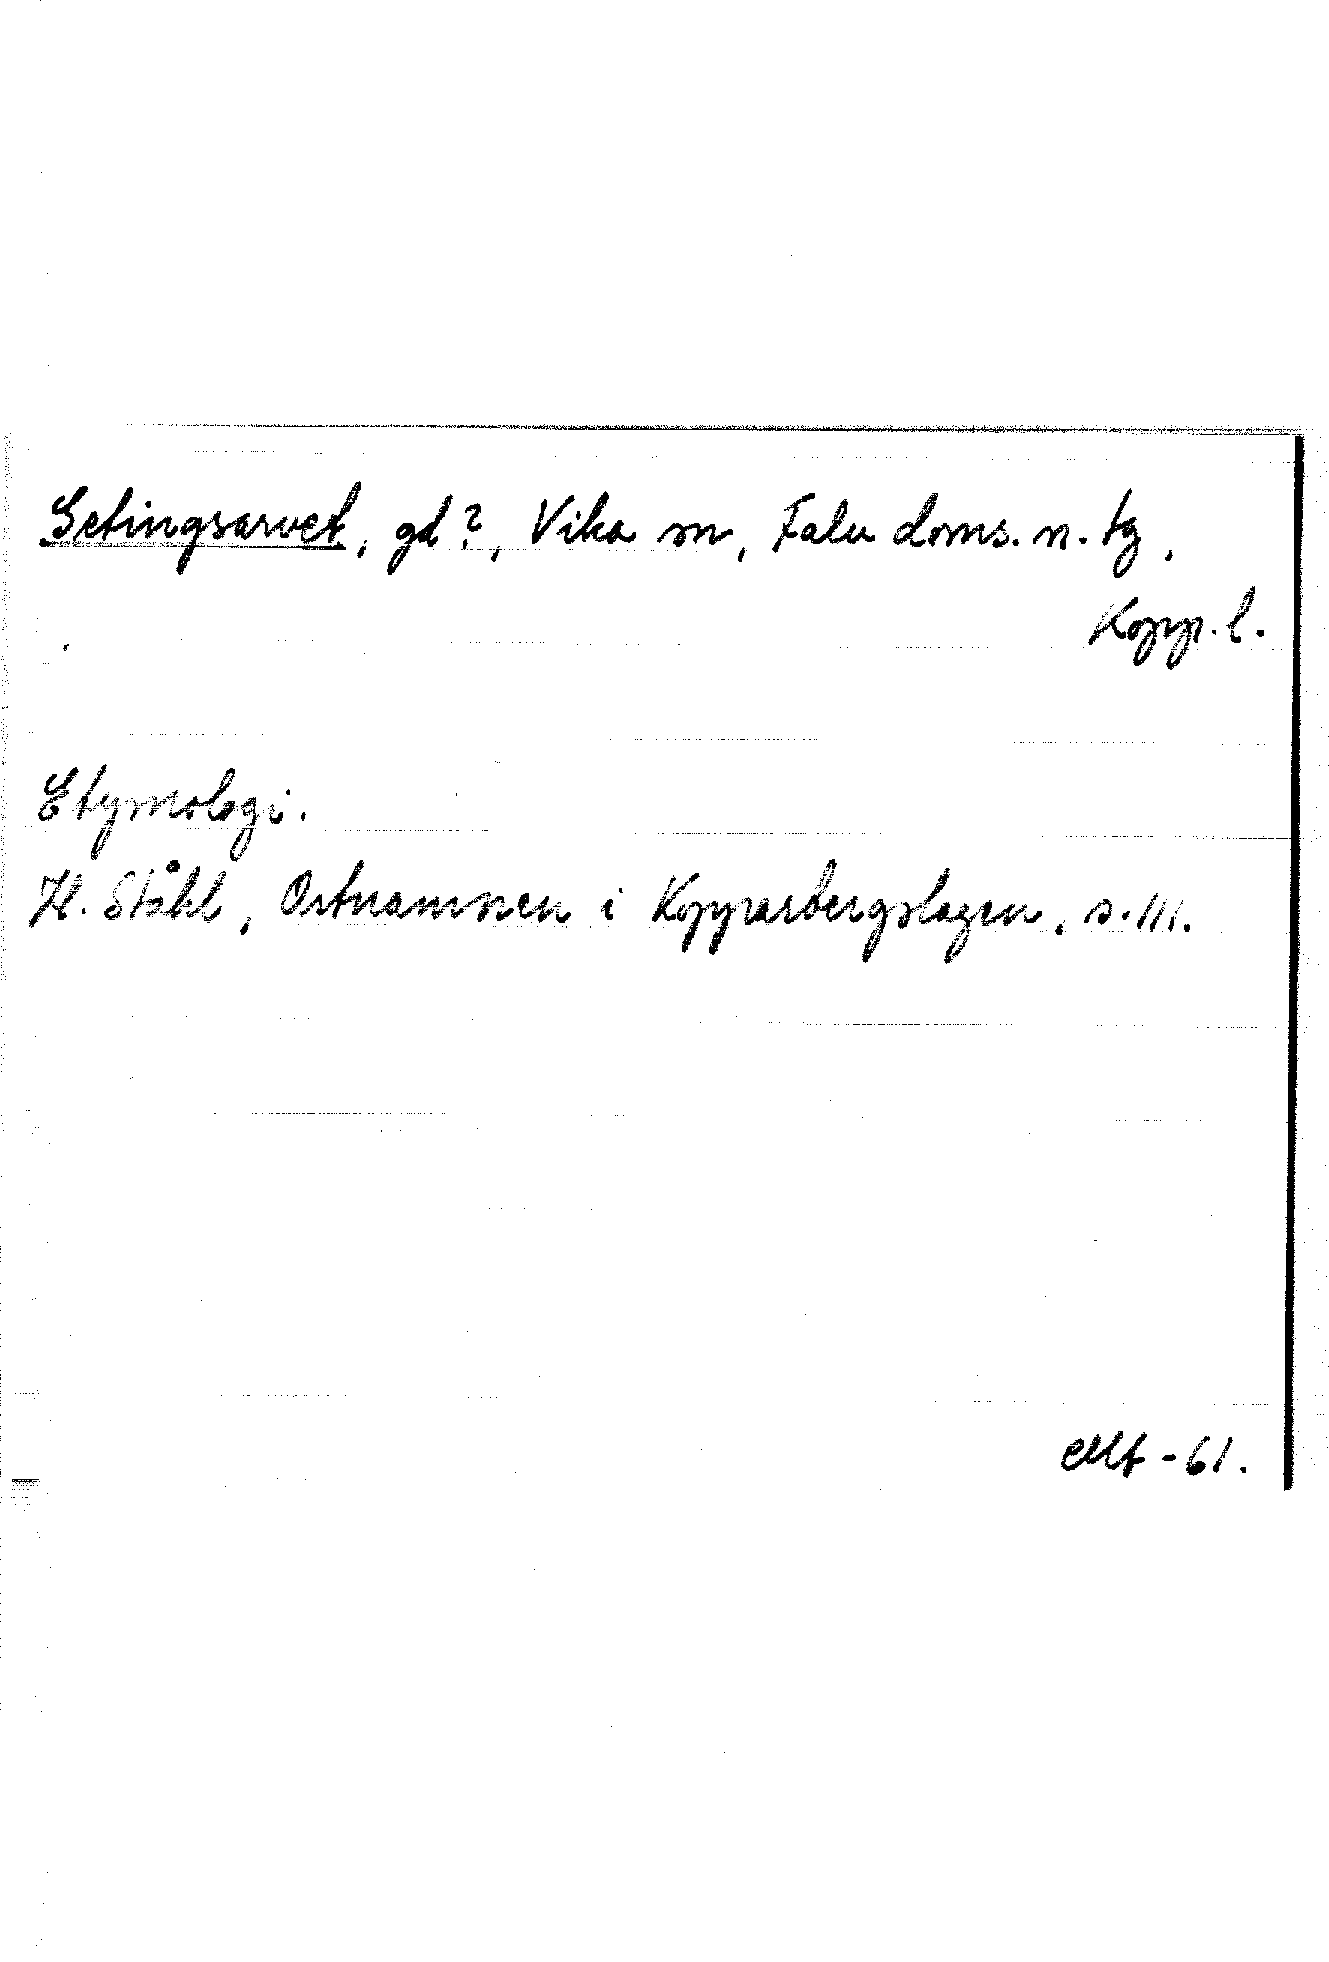 Setingsarvet, gd?, Vika sn, Falu doms. n. tg,
Kopp. l.
Etymologi.
H. Ståhl, Ortnamnen i Kopparbergslagen, s. 111.
-61.